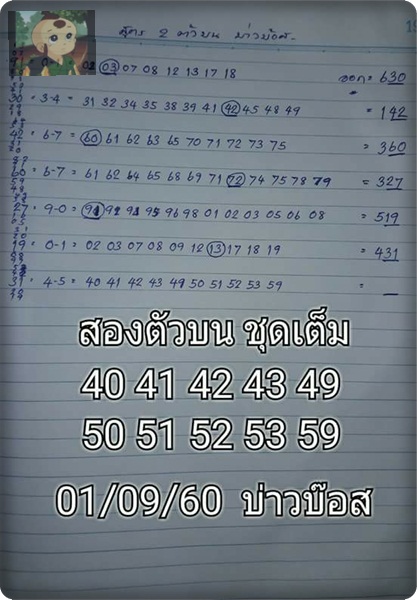 สูตร 2 ตัวบน บ่าวบ๊อส
03 07 08 12 13 17 18 ออก = 630
= 3-4 = 31 32 34 35 38 39 41 42 45 48 49 = 142
= 6-7 = 60 61 62 63 65 70 71 72 73 75 = 360
= 6-7 = 61 62 64 65 68 69 71 72 74 75 78 79 = 327
= 9-0 = 91 92 93 95 96 98 01 02 03 05 06 08 = 519
= 0-1 = 02 03 07 08 09 12 13 17 18 19 = 431
= 4-5 = 40 41 42 43 49 50 51 52 53 59 =
สองตัวบน ชุดเต็ม
40 41 42 43 49
50 51 52 53 59
01/09/60 บ่าวบ๊อส